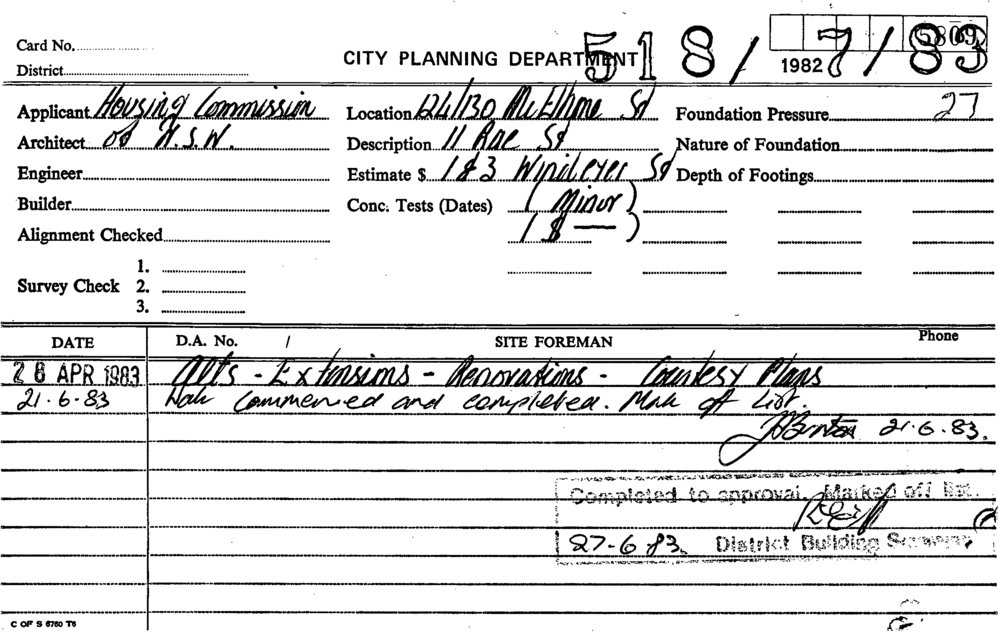 5809
Card No.
CITY PLANNING DEPARTMENT 518/7/83
1982
District
Applicant Housing Commission Location 124/130 McElhone St Foundation Pressure 27
Architect of N.S.W. Description 11 Rae St Nature of Foundation
Engineer Estimate $ 1 & 3 Windeyer St Depth of Footings
Builder Conc. Tests (Dates) (Minor)
Alignment Checked 1 $ — )
1.
Survey Check 2.
3.
DATE D.A. No. / SITE FOREMAN Phone
28 APR 1983 Alts - Extensions - Renovations - Courtesy Plans
21.6.83 commenced and completed. Mark off List.
21.6.83.
Completed to approval. Marked off list.
27-6-83. District Building Surveyor
C OF S 6760 T6